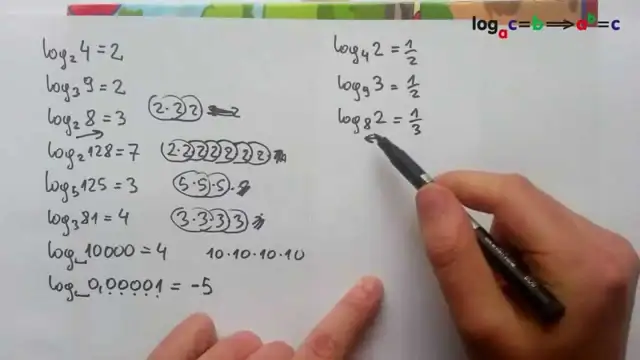 logₐc=b⟹aᵇ=c
log₂4=2
log₃9=2
log₂8=3 2·2·2
log₂128=7 2·2·2·2·2·2·2
log₅125=3 5·5·5
log₃81=4 3·3·3·3
log_10000=4 10·10·10·10
log_0,00001=-5
log₄2=½
log₉3=½
log₈2=⅓